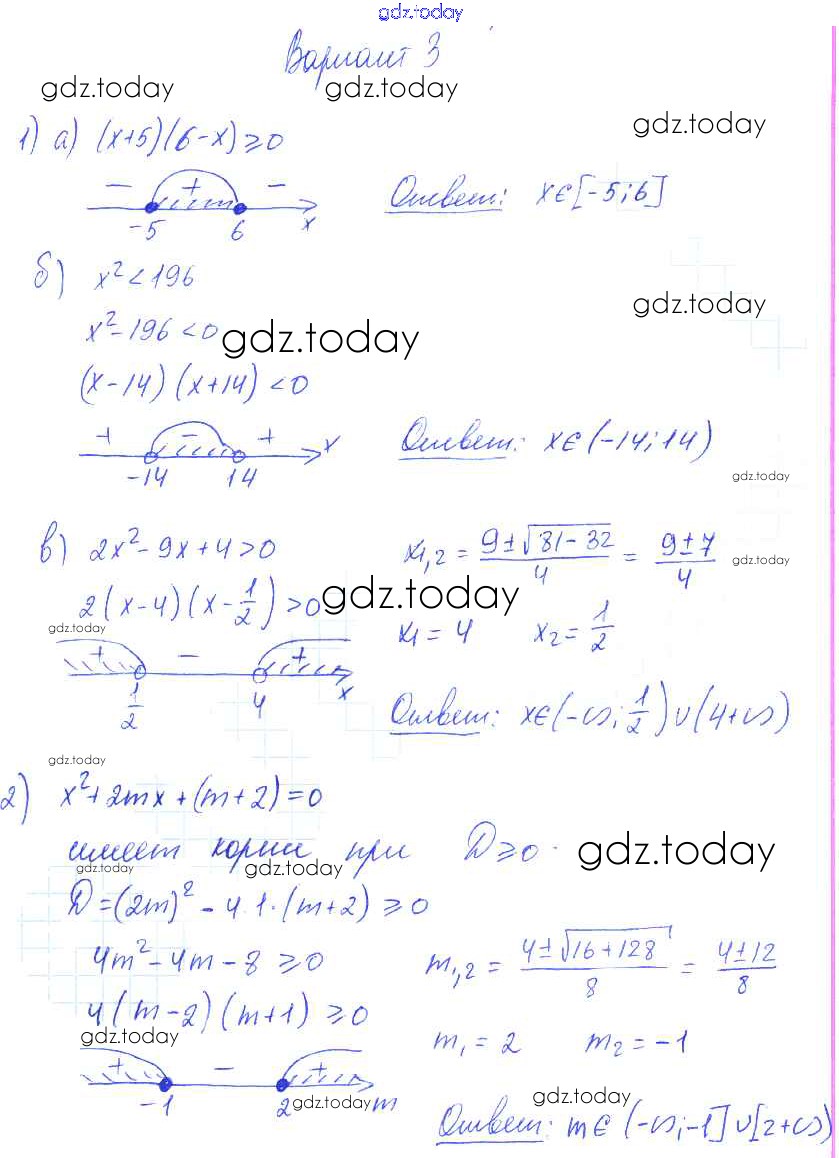 gdz.today
Вариант 3
gdz.today gdz.today
gdz.today
1) а) (x+5)(6-x)≥0
- + -
-5 6 x
Ответ: x∈[-5;6]
б) x²<196
gdz.today
x²-196<0
gdz.today
(x-14)(x+14)<0
+ - + x
-14 14
Ответ: x∈(-14;14)
gdz.today
в) 2x²-9x+4>0
x₁,₂ = (9±√81-32)/4 = (9±7)/4
gdz.today
2(x-4)(x-1/2)>0
gdz.today
gdz.today
x₁=4 x₂=1/2
+ - +
1/2 4 x
Ответ: x∈(-∞;1/2)∪(4+∞)
gdz.today
2) x²+2mx+(m+2)=0
имеет корни при D≥0
gdz.today
gdz.today gdz.today
D=(2m)²-4·1·(m+2)≥0
4m²-4m-8≥0
m₁,₂ = (4±√16+128)/8 = (4±12)/8
4(m-2)(m+1)≥0
gdz.today
m₁=2 m₂=-1
+ - +
-1 2 m
gdz.today
gdz.today
Ответ: m∈(-∞;-1]∪[2+∞)